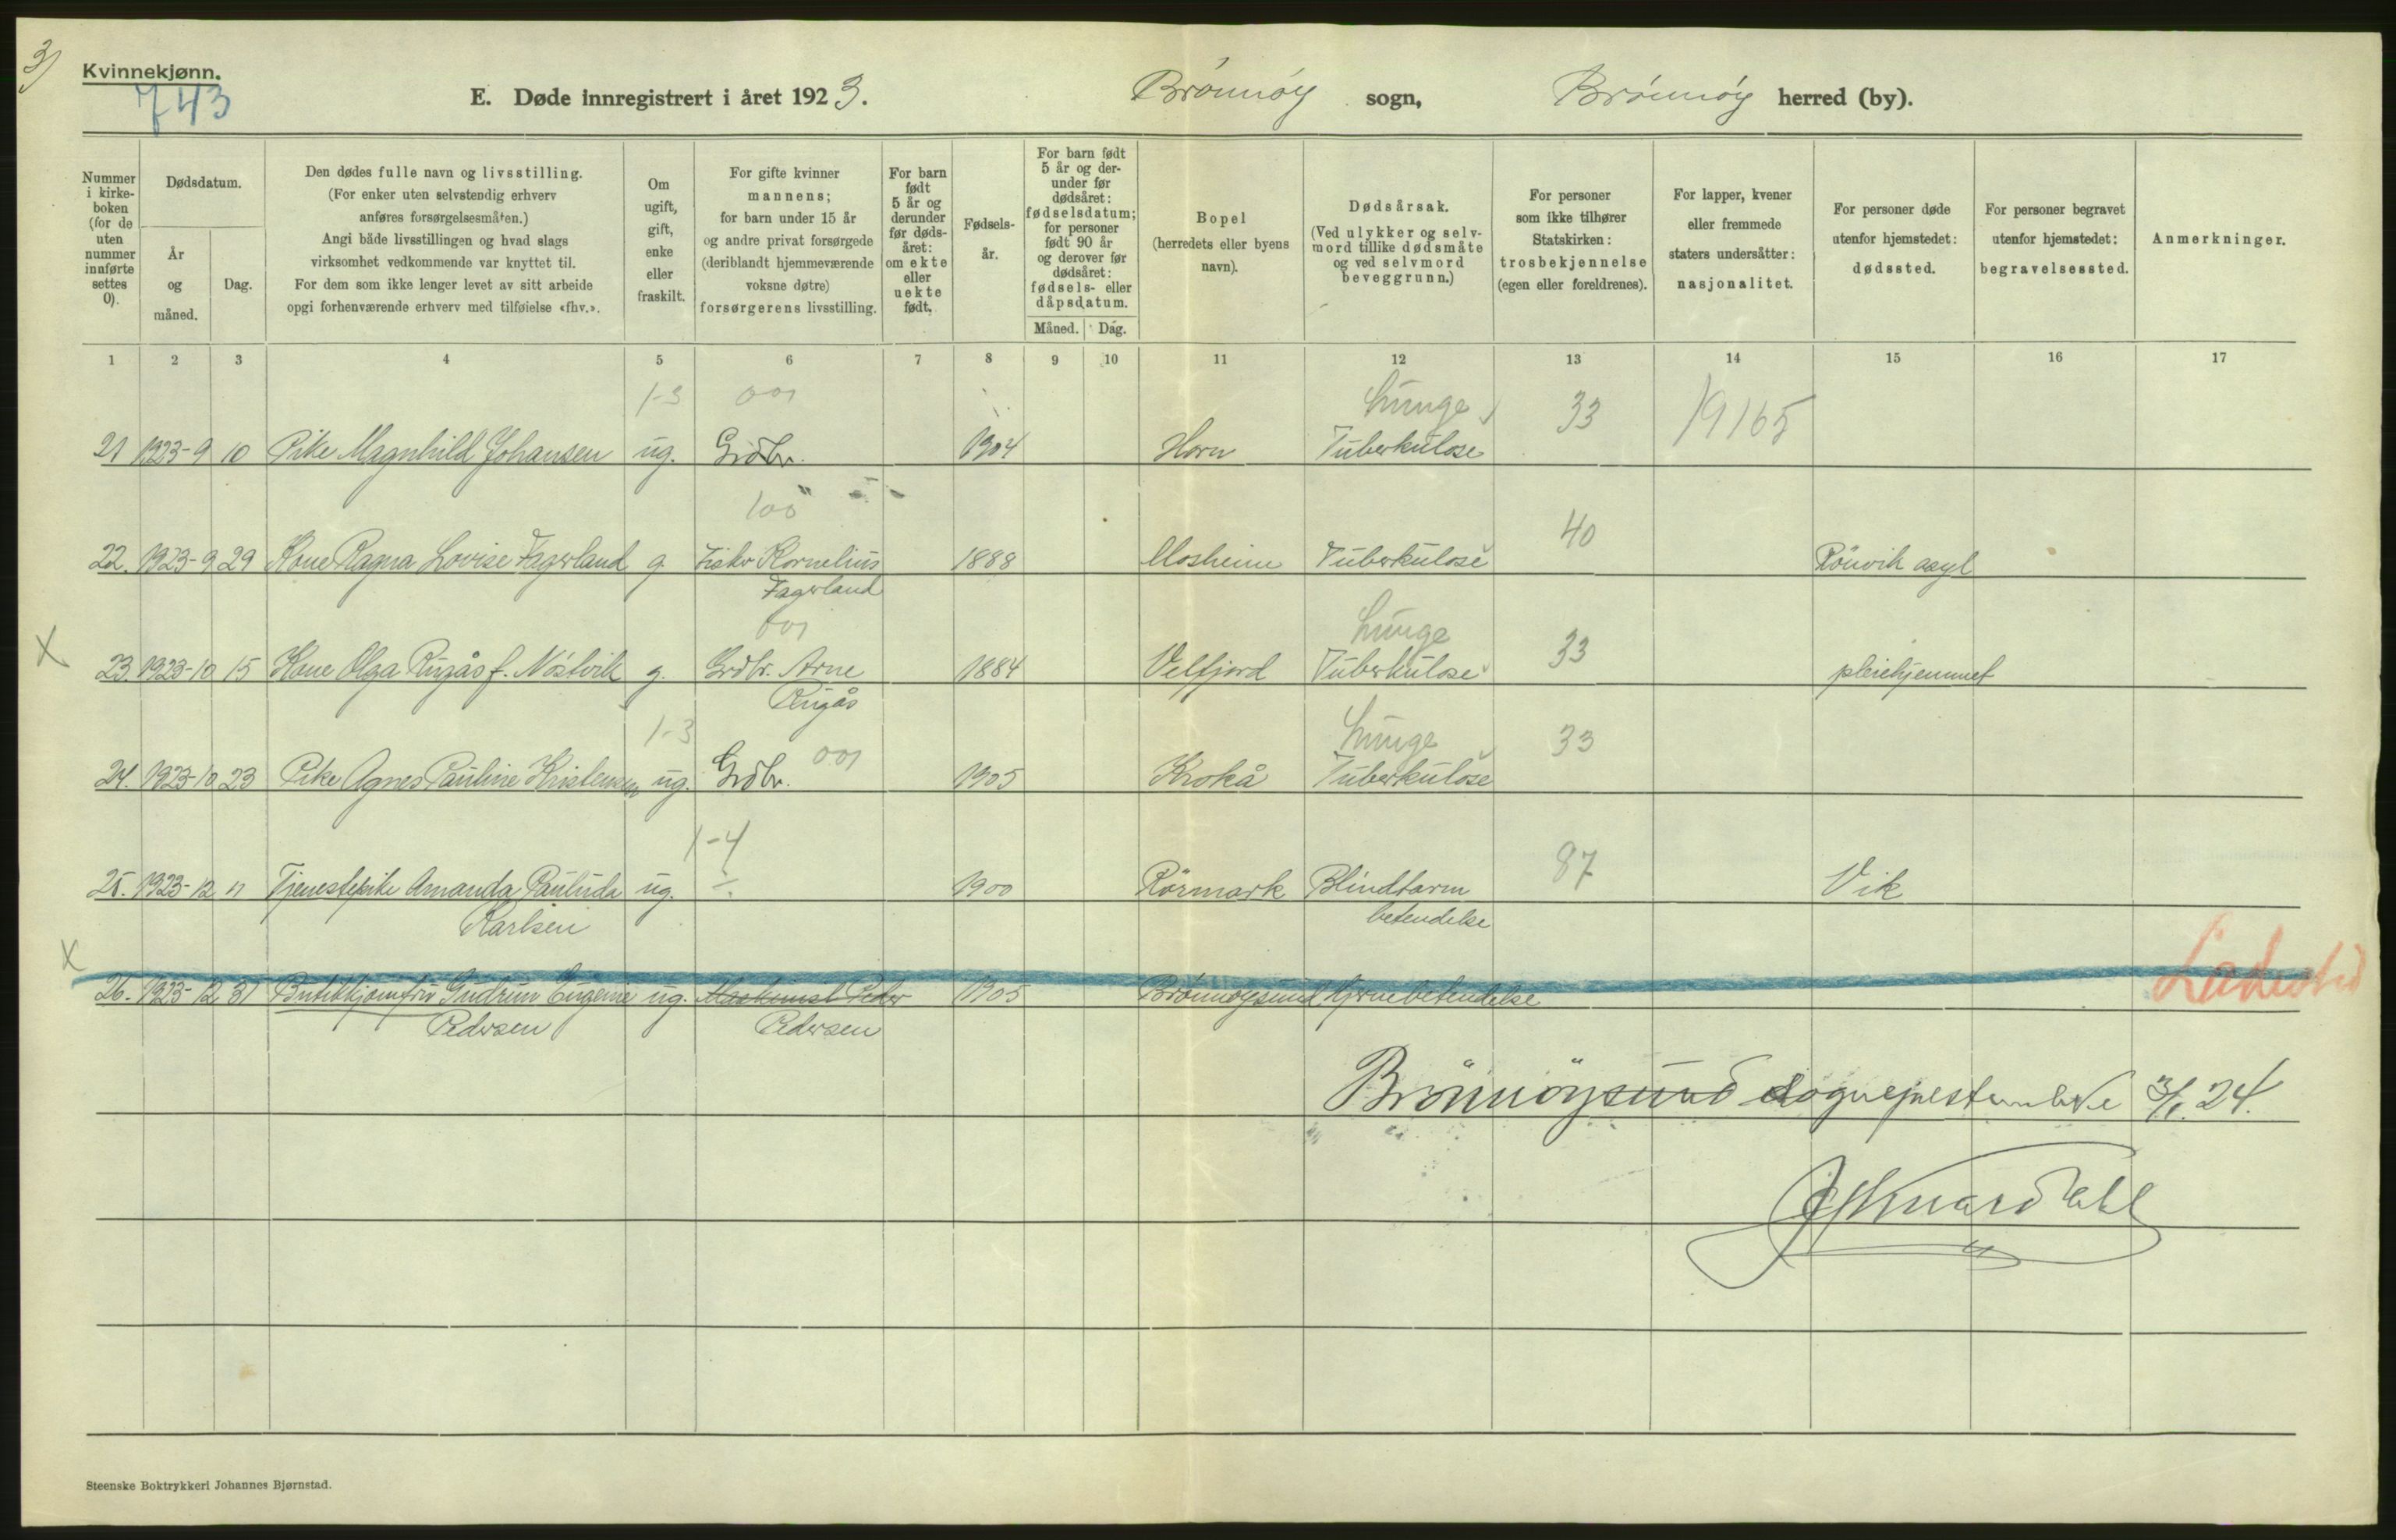 3)
Kvinnekjønn.
743
E. Døde innregistrert i året 1923.
Brönnöy sogn, Brönnöy herred (by).
Nummer i kirke-boken (for de uten nummer innførte settes 0).
Dødsdatum.
År og måned.
Dag.
Den dødes fulle navn og livsstilling.
(For enker uten selvstendig erhverv
anføres forsørgelsesmåten.)
Angi både livsstillingen og hvad slags
virksomhet vedkommende var knyttet til.
For dem som ikke lenger levet av sitt arbeide
opgi forhenværende erhverv med tilføielse «fhv.».
Om ugift, gift, enke eller fraskilt.
For gifte kvinner
mannens;
for barn under 15 år
og andre privat forsørgede
(deriblandt hjemmeværende
voksne døtre)
forsørgerens livsstilling.
For barn født 5 år og derunder før døds-året: om ekte eller uekte født.
Fødsels-år.
For barn født 5 år og der-under før dødsåret: fødselsdatum; for personer født 90 år og derover før dødsåret: fødsels- eller dåpsdatum.
Måned. Dag.
Bopel
(herredets eller byens
navn).
Dødsårsak.
(Ved ulykker og selv-
mord tillike dødsmåte
og ved selvmord
beveggrunn.)
For personer
som ikke tilhører
Statskirken:
trosbekjennelse
(egen eller foreldrenes).
For lapper, kvener
eller fremmede
staters undersåtter:
nasjonalitet.
For personer døde
utenfor hjemstedet:
dødssted.
For personer begravet
utenfor hjemstedet:
begravelsessted.
Anmerkninger.
1 2 3 4 5 6 7 8 9 10 11 12 13 14 15 16 17
1-3 001 Lunge 33 19165
21 1923-9 10 Pike Magnhild Johansen ug. Grdbr. 1904 Horn Tuberkulose
100 40
22. 1923-9 29 Kone Ragna Lovise Fagerland g. Fisker Kornelius 1888 Mosheim Tuberkulose Rönvik asyl
Fagerland
001 Lunge 33
X 23. 1923-10 15 Kone Olga Rugås f. Nöstvik g. Grdbr. Arne 1884 Velfjord Tuberkulose pleiehjemmet
Rugås
1-3 001 Lunge 33
24. 1923-10 23 Pike Agnes Pauline Kristensen ug. Grdbr. 1905 Krokå Tuberkulose
1-4 87
25. 1923-12 11 Tjenestepike Amanda Paulida ug. ÷ 1900 Rörmark Blindtarm Vik
Karlsen betendelse
X 26. 1923-12 31 Butikkjomfru Gudrun Eugenie ug. Maskinist Peder 1905 Brönnöysund Hjernebetendelse Ladested
Pedersen Pedersen
Brönnöysund sogneprestembede 3/1. 24.
Steenske Boktrykkeri Johannes Bjørnstad.